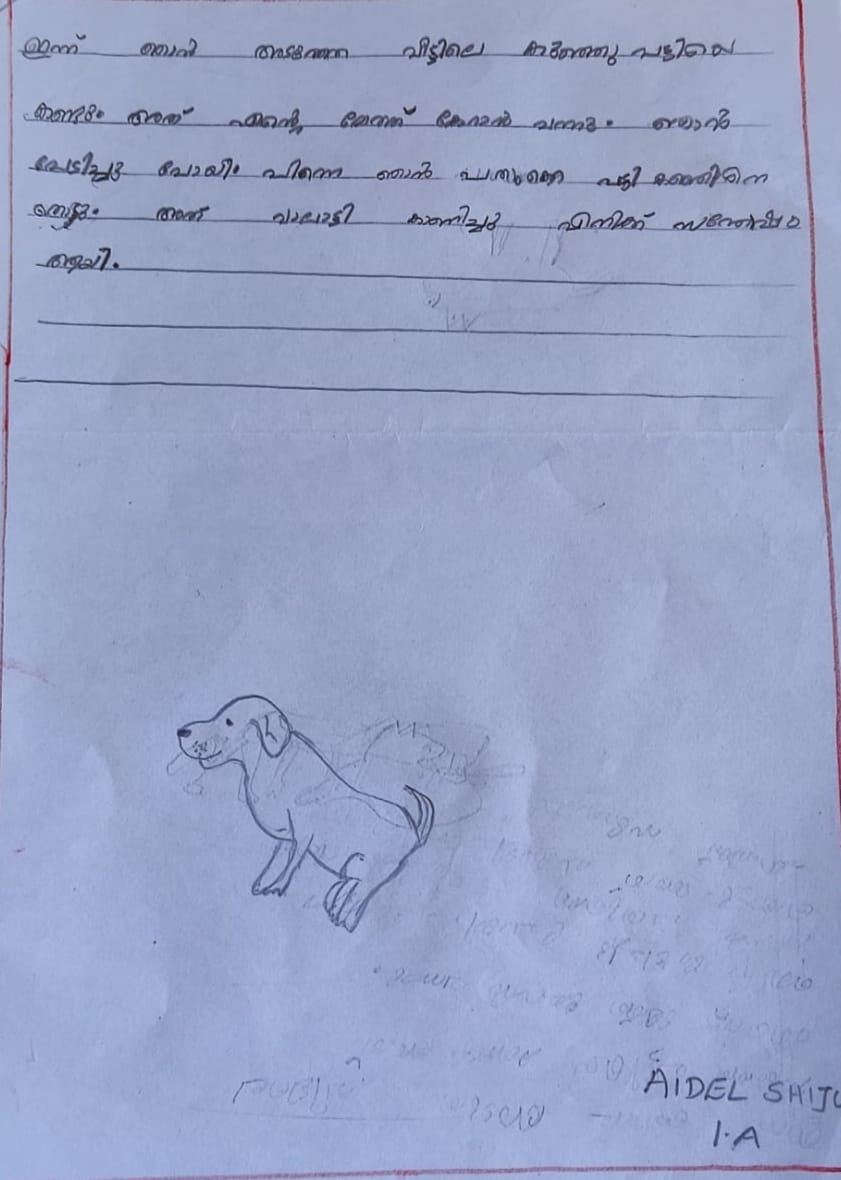 ഇന്ന് ഞാൻ അടുത്ത വീട്ടിലെ കുഞ്ഞു പട്ടിയെ
കണ്ടു. അത് എന്റെ മേത്ത് കേറാൻ വന്നു. ഞാൻ
പേടിച്ചു പോയി. പിന്നെ ഞാൻ പതുക്കെ പട്ടി കുഞ്ഞിനെ
തൊട്ടു. അത് വാലാട്ടി കാണിച്ചു എനിക്ക് സന്തോഷം
ആയി.
AIDEL SHIJU
1.A